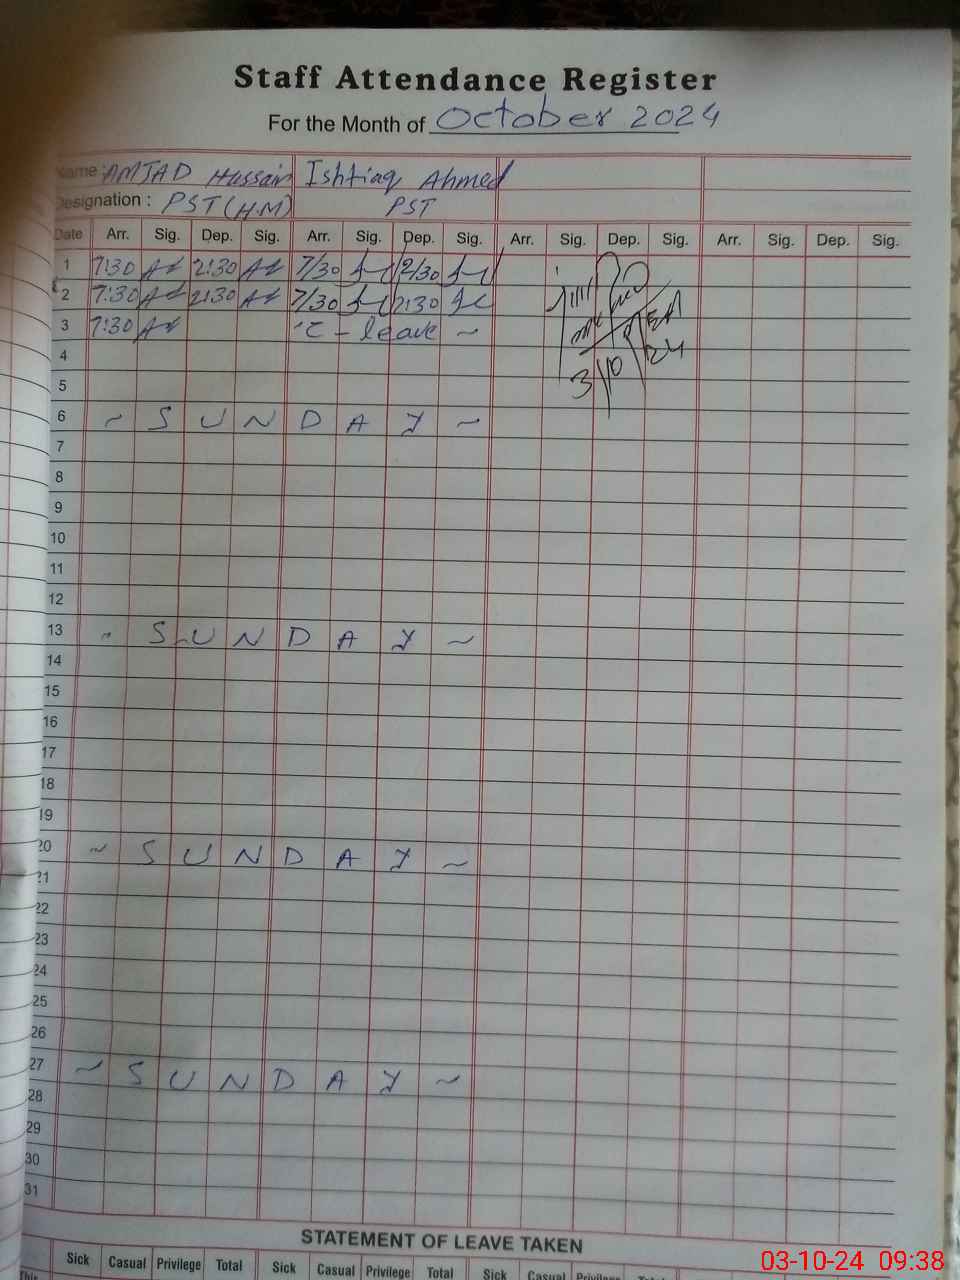 Staff Attendance Register
For the Month of October 2024
Name : AMJAD Hussain Ishtiaq Ahmed
Designation : PST (H.M) PST
Date Arr. Sig. Dep. Sig. Arr. Sig. Dep. Sig. Arr. Sig. Dep. Sig. Arr. Sig. Dep. Sig.
1 7:30 2:30 7/30 2/30
2 7:30 2:30 7/30 2:30
3 7:30 C - leave ~
4
5
3/10/24
6 ~ S U N D A Y ~
7
8
9
10
11
12
13 ~ S U N D A Y ~
14
15
16
17
18
19
20 ~ S U N D A Y ~
21
22
23
24
25
26
27 ~ S U N D A Y ~
28
29
30
31
STATEMENT OF LEAVE TAKEN
Sick Casual Privilege Total Sick Casual Privilege Total Sick Casual Privilege Total
This
03-10-24 09:38